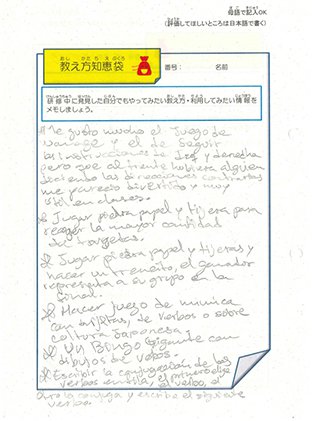 母語で記入OK
(評価してほしいところは日本語で書く)
教え方知恵袋
番号: 名前
研修中に発見した自分でもやってみたい教え方・利用してみたい情報を
メモしましょう。
* Me gusto mucho el Juego de
y el de Seguir
las instrucciones de Izq y derecha
pero que al frente hubiera alguien
diciendo las direcciones contrarias
me parecio divertido y muy
util en clases.
* Jugar piedra papel y tijera para
recoger la mayor cantidad
de targetas.
* Jugar piedra papel y tijeras y
hacer un trencito, el ganador
representa a su grupo en la
final.
* Hacer juego de mimica
con tarjetas, de verbos o sobre
cultura Japonesa!
* Un Bingo Gigante con
dibujos de verbos.
* Escribir la conjugación de los
verbos en fila, el primero elige
el verbo, el
otro lo conjuga y escribe el siguiente
verbo.